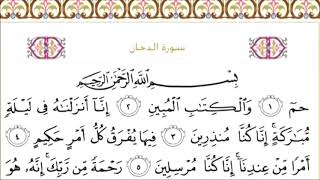 سورة الدخان
بِسْمِ اللَّهِ الرَّحْمَٰنِ الرَّحِيمِ
حمٓ ١ وَالْكِتَابِ الْمُبِينِ ٢ إِنَّا أَنزَلْنَاهُ فِي لَيْلَةٍ
مُّبَارَكَةٍ ۚ إِنَّا كُنَّا مُنذِرِينَ ٣ فِيهَا يُفْرَقُ كُلُّ أَمْرٍ حَكِيمٍ ٤
أَمْرًا مِّنْ عِندِنَا ۚ إِنَّا كُنَّا مُرْسِلِينَ ٥ رَحْمَةً مِّن رَّبِّكَ ۚ إِنَّهُ هُوَ